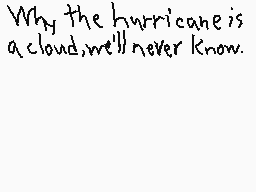 Why the hurricane is
a cloud, we'll never know.